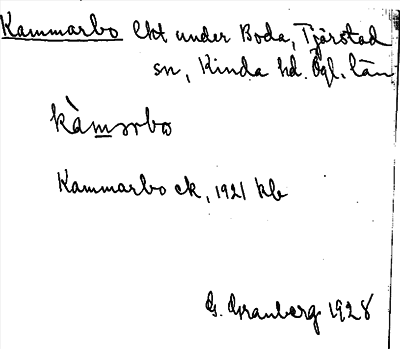 Kammarbo lht under Boda, Tjärstad
sn, Kinda hd. Ögl. län
kàmarbo
Kammarbo ek, 1921 kb
G. Granberg 1928